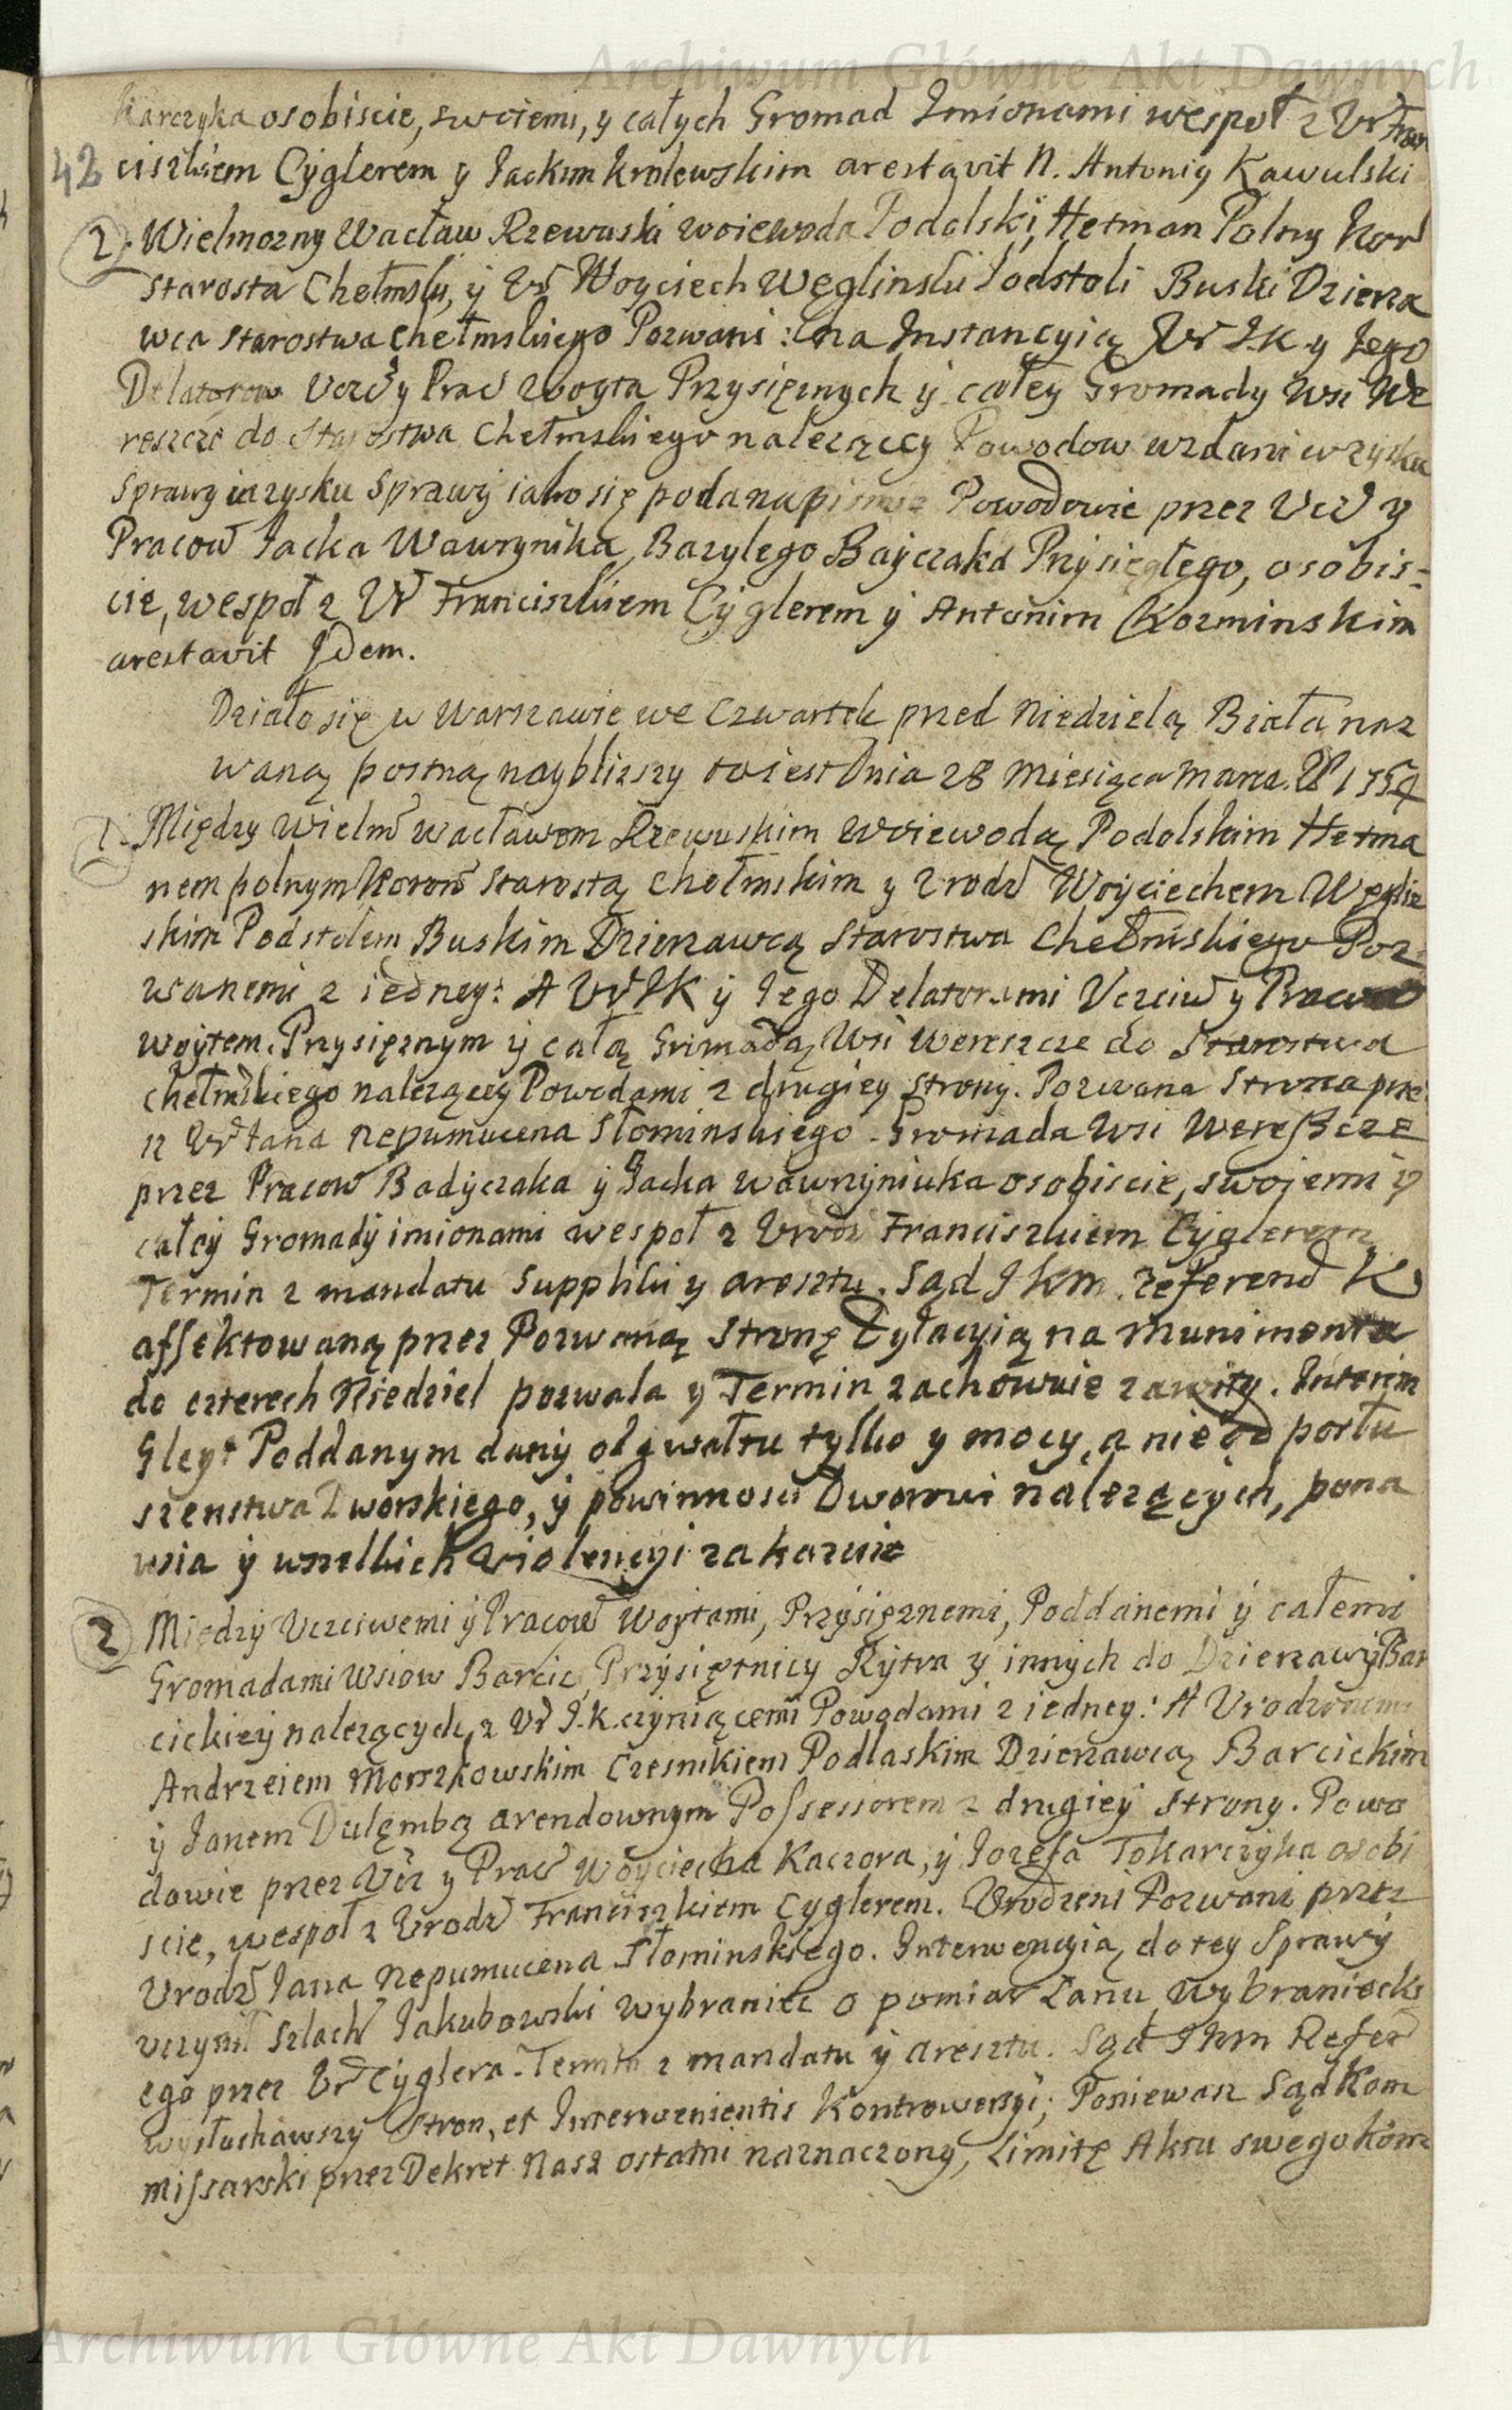 Archiwum Główne Akt Dawnych
karczyka osobiscie, swoiemi, y całych Gromad Imionami wespoł z Ur Fran
42 ciszkiem Cyglerem y Jackim Krolewskim arestavit N. Antoniy Kawulski
2. Wielmozny Wacław Rzewuski woiewoda Podolski, Hetman Polny Kor
Starosta Chełmski, y Ur Woyciech Węglinski Podstoli Buski Dzierza
wca Starostwa Chełmskiego Pozwani: na Instancyią Ur I.K. y Jego
Delatorow Ucz y Prac woyta Przysięznych y całey Gromady wsi We
reszcze do Starostwa Chełmskiego nalezącey Powodow wzdani w zysku
Sprawy iako się poda na pismie Powodowie przez Ucz y
Pracow Jacka Wawrynika, Bazylego Bayczaka Przysięgłego, osobis=
cie, wespoł z Ur Franciszkiem Cyglerem y Antonim Kozminskim
arestavit Idem.
Działo się w Warszawie we Czwartek przed Niedzielą Białą naz
waną postną naybliszy to iest Dnia 28 Miesiąca Marca R 1754
1. Między Wielm Wacławem Rzewuskim Woiewodą Podolskim Hetma
nem polnym Koron Starostą Chełmskim y Urodz Woyciechem Węglin
skim Podstolem Buskim Dzierzawcą Starostwa Chełmskiego Poz
wanemi z iedney: A Ur IK y Jego Delatorami Ucziw y Pracow
woytem, Przysięznym y całą Gromadą Wsi Wereszcze do Starostwa
Chełmskiego nalezącey Powodami z drugiey strony. Pozwana Strona prze
z Ur Jana Nepumucena Słominskiego. Gromada Wsi Wereszcze
przez Pracow Badyczaka y Jacka Wawryniuka osobiscie, swojemi y
całey Gromady imionami wespoł z Urodz Franciszkiem Cyglerem
Termin z mandatu Suppliki y aresztu. Sąd IKM. Referend K
affektowaną przez Pozwaną Stronę Dylacyią na Munimenta
do czterech Niedziel pozwala y Termin zachowuie zawity. Interim
Gleyt Poddanym dany od gwałtu tylko y mocy, a nie od posłu
szenstwa Dworskiego, y powinnosci Dworowi nalezących, pona
wia y wszelkich violencyi zakazuie
2 Między Uczciwemi y Pracow Woytami, Przysięznemi, Poddanemi y całemi
Gromadami Wsiow Barcic, Przysietnicy Rytra y innych do Dzierzawy Bar
cickiey nalezących, z Ur I.K. czyniącemi Powodami z iedney: A Urodzonem
Andrzeiem Moszkowskim Czesnikiem Podlaskim Dzierzawcą Barcickim
y Janem Dulęmbą arendownym Possessorem z drugiey strony. Powo
dowie przez Ucz y Prac Woyciecha Kaczora, y Jozefa Tokarczyka osobi
scie, wespoł z Urodz Franciszkiem Cyglerem. Urodzeni Pozwani przez
Urodz Jana Nepumucena Słominskiego. Interwencyią do tey Sprawy
uczynił szlach Jakubowski wybraniec o pomiar Łanu Wybraniecki
ego przez Ur Cyglera. Termin z mandatu y aresztu. Sąd IKM Refer
wysłuchawszy Stron, et Intervenientis Kontrowersyi; Poniewasz Sąd Kom
missarski przez Dekret Nasz ostatni naznaczony, Limitę Aktu swego Kom
Archiwum Główne Akt Dawnych